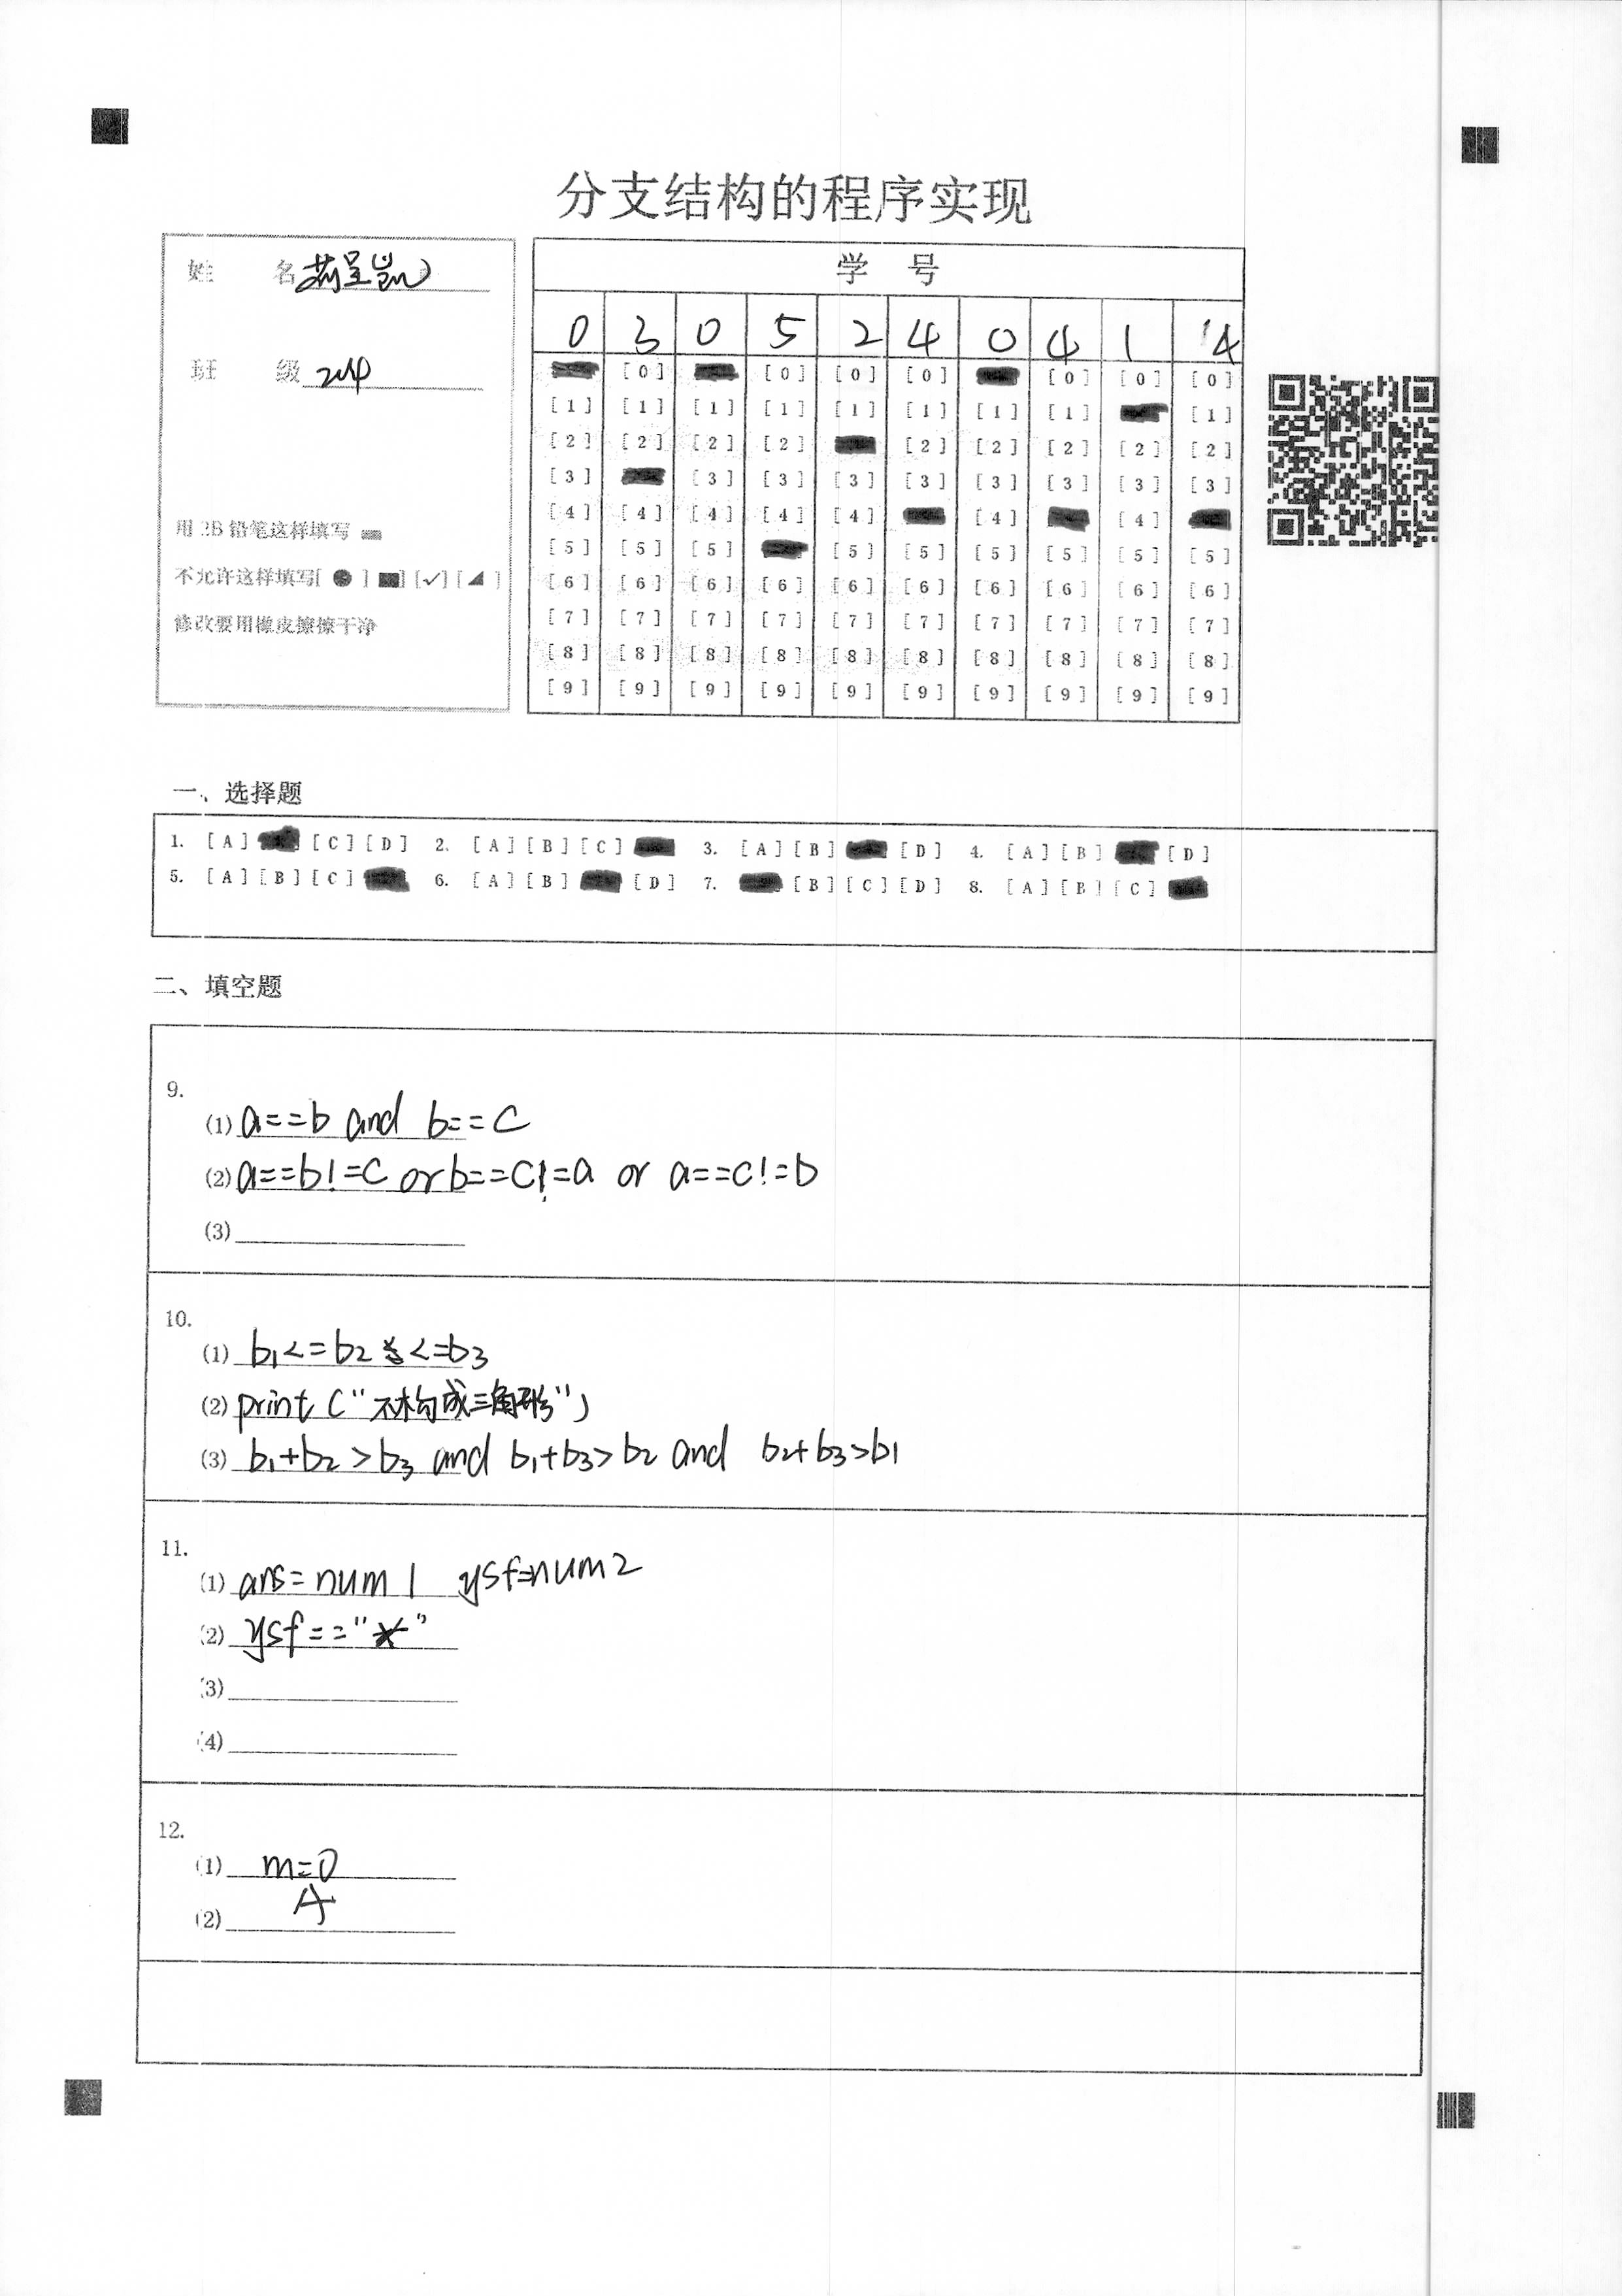 分支结构的程序实现
姓 名
班 级 204
用 2B 铅笔这样填写
不允许这样填写[ ● ] [✓] [ ]
修改要用橡皮擦擦干净
学 号
0 3 0 5 2 4 0 4 1 4
[0] [0] [0] [0] [0] [0] [0]
[1] [1] [1] [1] [1] [1] [1] [1] [1]
[2] [2] [2] [2] [2] [2] [2] [2] [2]
[3] [3] [3] [3] [3] [3] [3] [3] [3]
[4] [4] [4] [4] [4] [4] [4]
[5] [5] [5] [5] [5] [5] [5] [5] [5]
[6] [6] [6] [6] [6] [6] [6] [6] [6] [6]
[7] [7] [7] [7] [7] [7] [7] [7] [7] [7]
[8] [8] [8] [8] [8] [8] [8] [8] [8] [8]
[9] [9] [9] [9] [9] [9] [9] [9] [9] [9]
一、选择题
1. [A] [C] [D] 2. [A] [B] [C] 3. [A] [B] [D] 4. [A] [B] [D]
5. [A] [B] [C] 6. [A] [B] [D] 7. [B] [C] [D] 8. [A] [B] [C]
二、填空题
9.
(1) a==b and b==c
(2) a==b!=c or b==c!=a or a==c!=b
(3)
10.
(1) b1<=b2<=b3
(2) print("不构成三角形")
(3) b1+b2>b3 and b1+b3>b2 and b2+b3>b1
11.
(1) ans=num1 ysf=num2
(2) ysf=="*"
(3)
(4)
12.
(1) m=0
(2) A